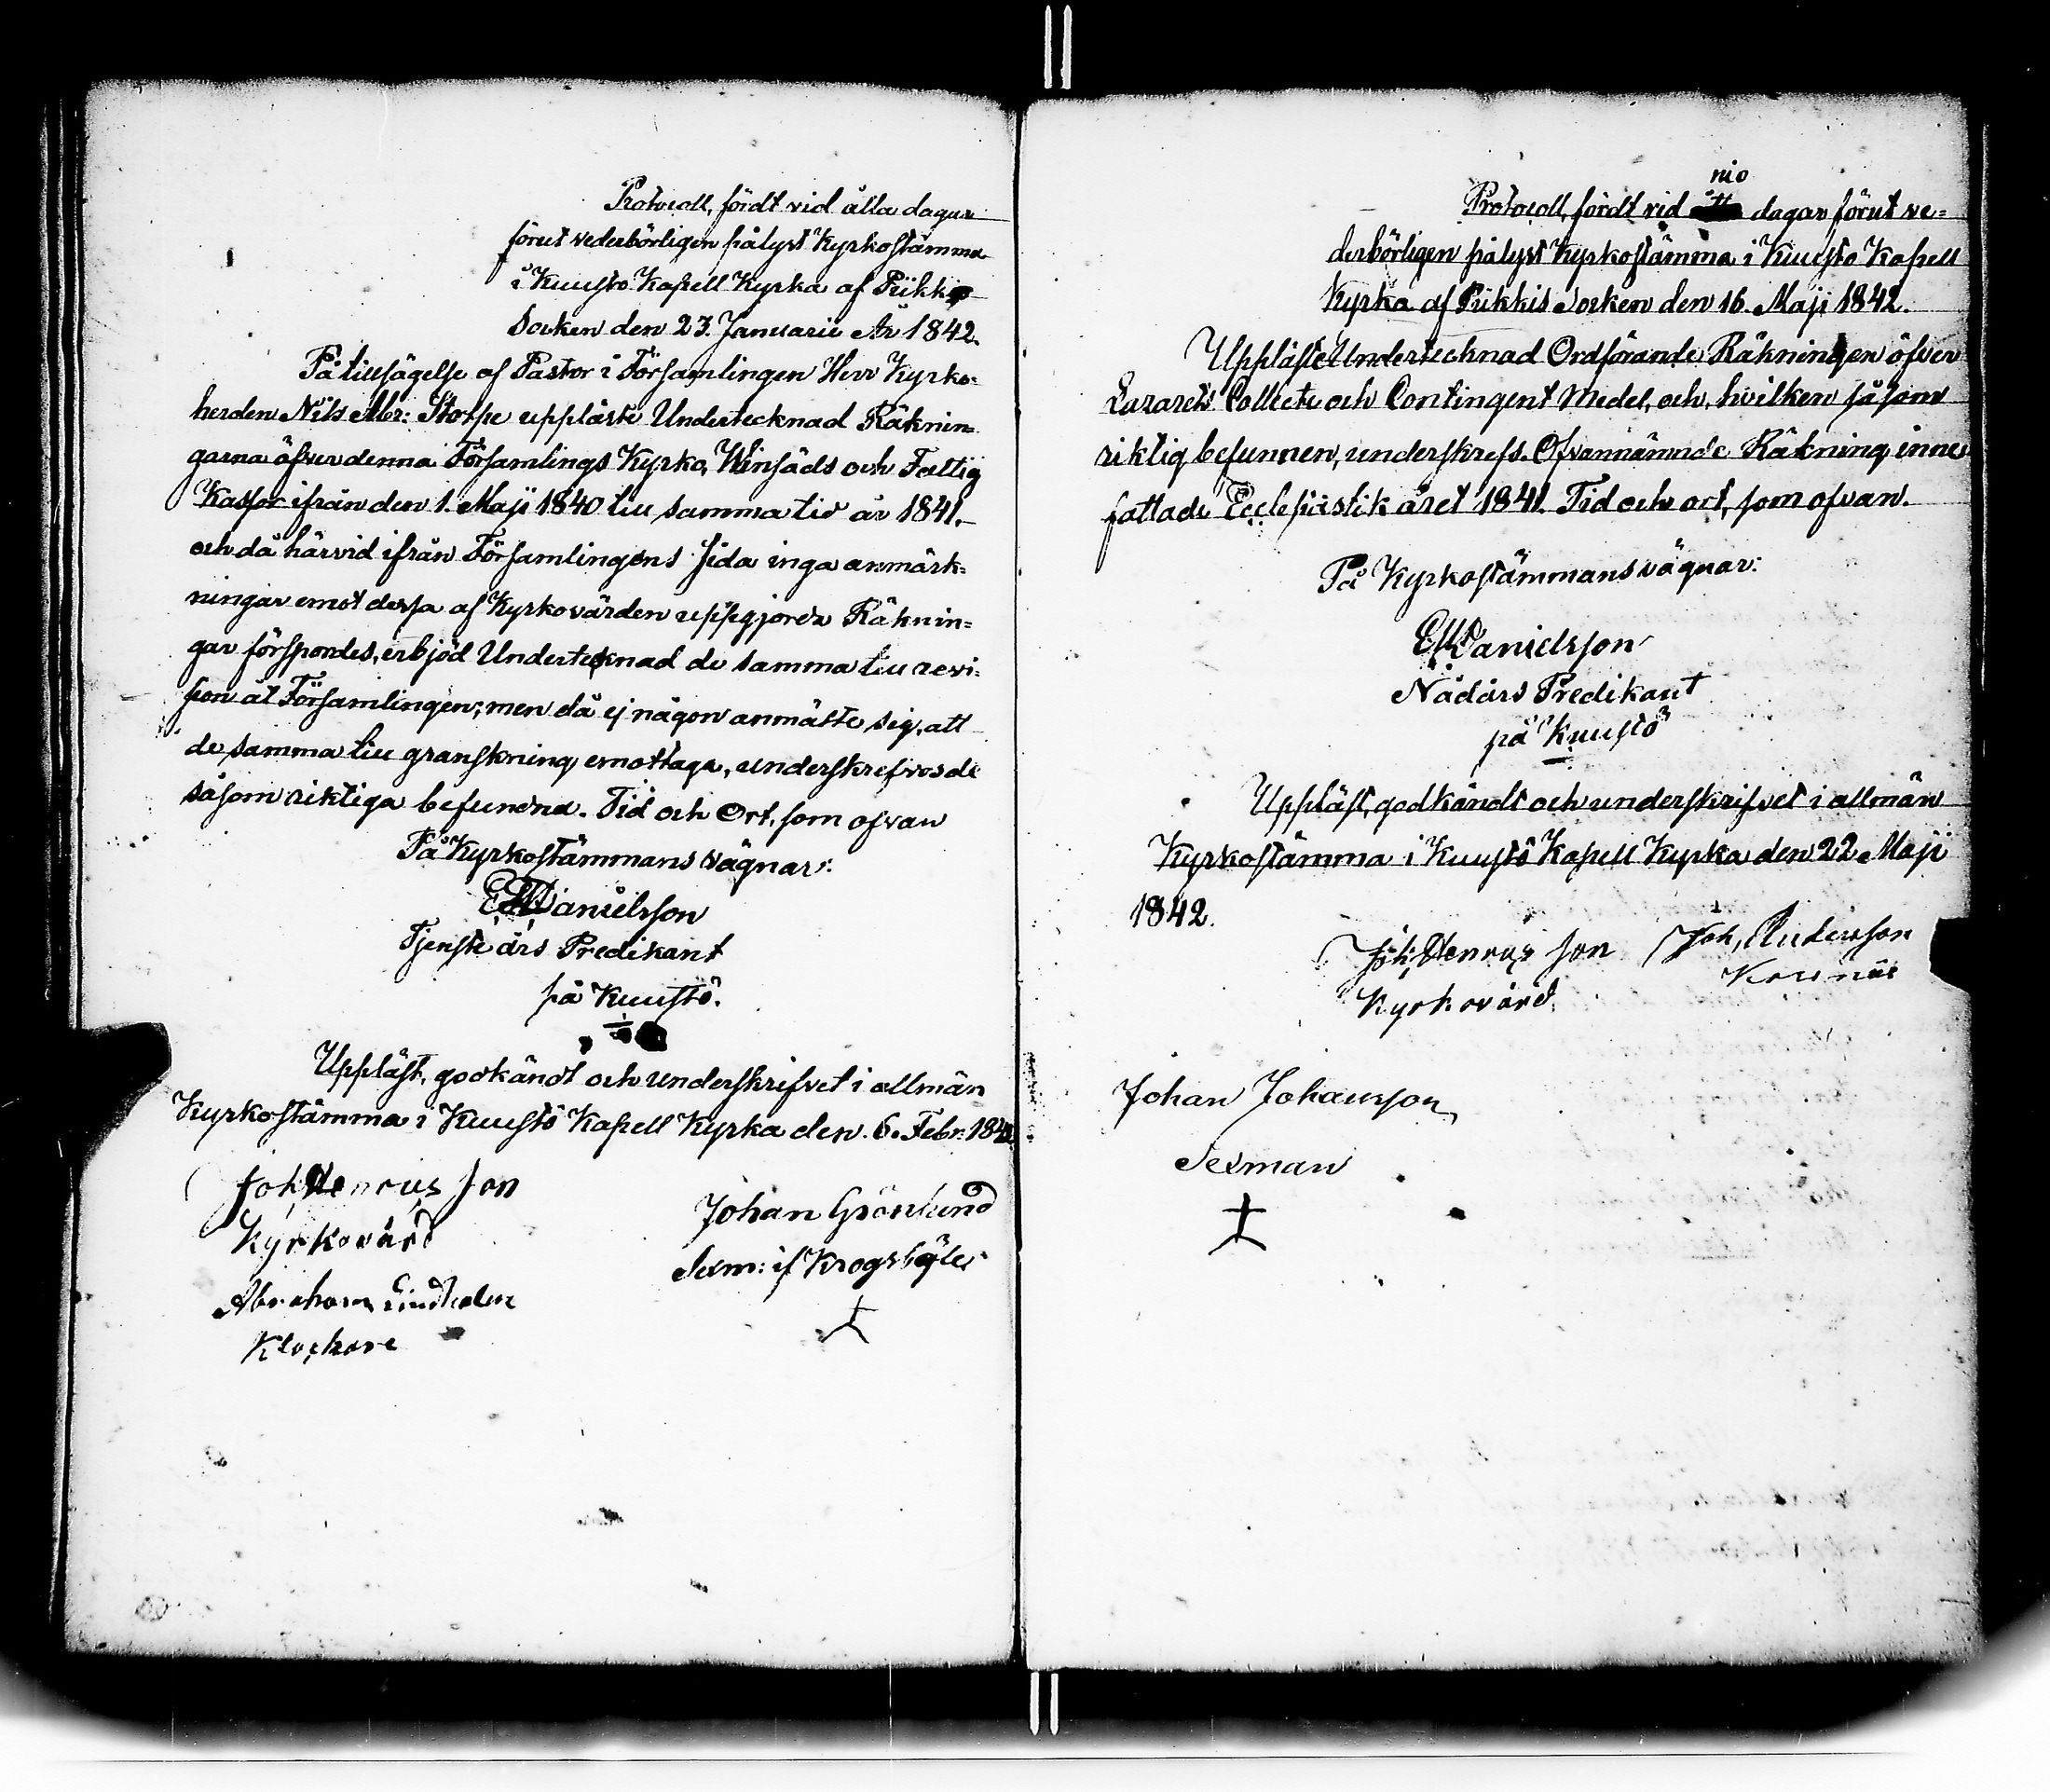 Protocoll, fördt vid åtta dagar
förut vederbörligen pålyst Kyrkostämma
i Kuusto Kapell Kyrka af Piikkis
Socken den 23. Januarii År 1842.
På tillsägelse af Pastor i Församlingen Herr Kyrko-
herden Nils Abr: Stolpe uppläste Undertecknad Räknin-
garna öfver denna Församlings Kyrko, Winsäds och Fattig
Kassor ifrån den 1. Maji 1840 till samma tid år 1841,
och då härvid ifrån Församlingens sida inga anmärk-
ningar emot dessa af Kyrkovärden uppgjorda Räknin-
gar förspordes, erbjöd Undertecknad de samma till revi-
sion åt Församlingen; men då ej någon anmälte sig, att
de samma till granskning emottaga, underskrefvos de
såsom riktiga befundna. Tid och Ort, som ofvan
På Kyrkostämmans vägnar:
Danielsson
Tjenste års Predikant
på Kuustö.
Uppläst, godkändt och underskrifvet i allmän
Kyrkostämma i Kuustö Kapell Kyrka den 6. Febr. 1842.
Joh, Henrics son
Kyrkovärd
Johan Grönlund
Sexm: if Krogsböle
Abraham Lindholm
Klockare
nio
Protocoll, fördt vid åtta dagar förut ve-
derbörligen pålyst Kyrkostämma i Kuusto Kapell
Kyrka af Piikkis Socken den 16. Maji 1842.
Uppläste Undertecknad Ordförande Räkningen öfver
Lazarets Collecte och Contingent Medel, och, hvilken såsom
riktig befunnen, underskrefs. Ofvannämnde Räkning inne-
fattade Ecclesiastik året 1841. Tid och ort, som ofvan.
På Kyrkostämmans vägnar:
Danielsson
Nådårs Predikant
på Kuustö
Uppläst, godkändt och underskrifvet i allmän
Kyrkostämma i Kuustö Kapell Kyrka den 22 Maji
1842.
Joh, Henrics son
Kyrkovärd
Joh, Andersson
Johan Johansson
Sexman